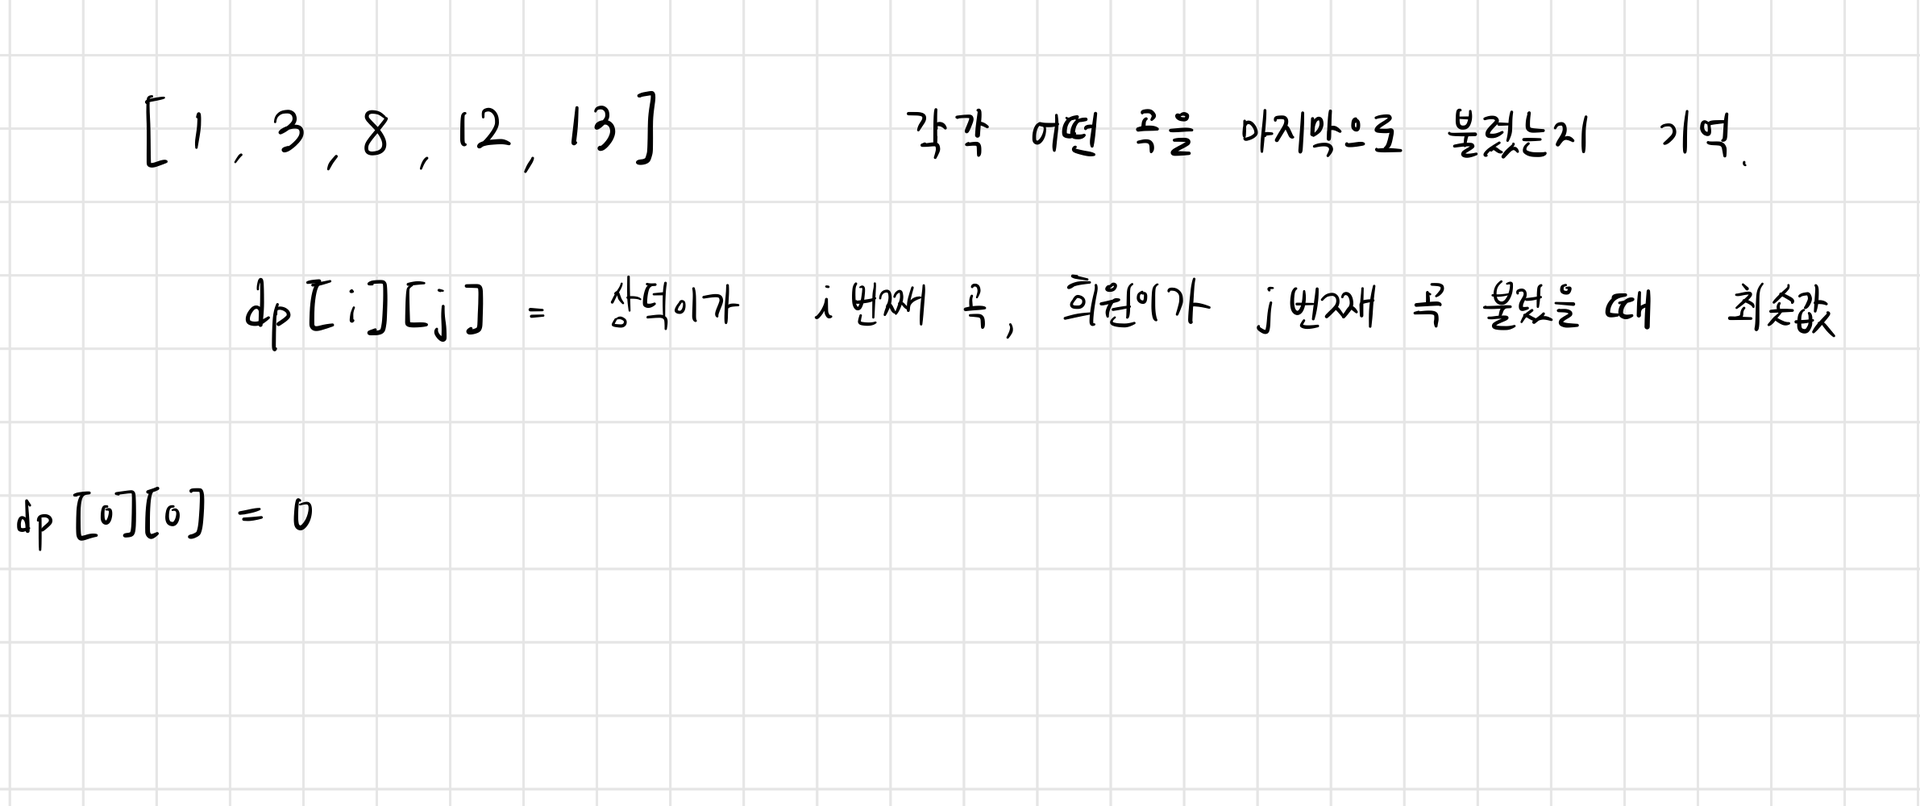 [ 1, 3, 8, 12, 13 ] 각각 어떤 곡을 마지막으로 불렀는지 기억.
dp[i][j] = 상덕이가 i번째 곡, 희원이가 j번째 곡 불렀을 때 최솟값
dp[0][0] = 0